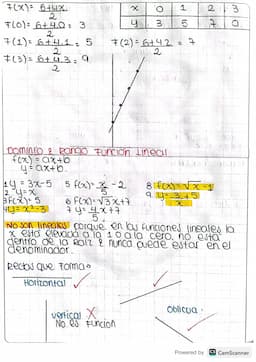 f(x) = 6+4x
2
x 0 1 2 3
y 3 5 7 0
f(0) = 6+4.0 = 3
2
f(1) = 6+4.1 = 5 f(2) = 6+4.2 = 7
2 2
f(3) = 6+4.3 = 9
2
Dominio & Rango Función Lineal
f(x) = ax+b
y = ax+b.
1 y = 3x-5 5 f(x) = x/5 - 2 8 f(x) = √x-1
2 y = x 9 y = 3+5/x
3 f(x) = 5 6 f(x) = √3x+7
4 y = x²-3 7 y = 4x+7
5
No son lineales porque en las funciones lineales la
x esta elevada a la 1 o a la cero, no esta
dentro de la raiz & nunca puede estar en el
denominador.
Rectas que forma
Horizontal
vertical X Oblicua
No es Función
Powered by CS CamScanner